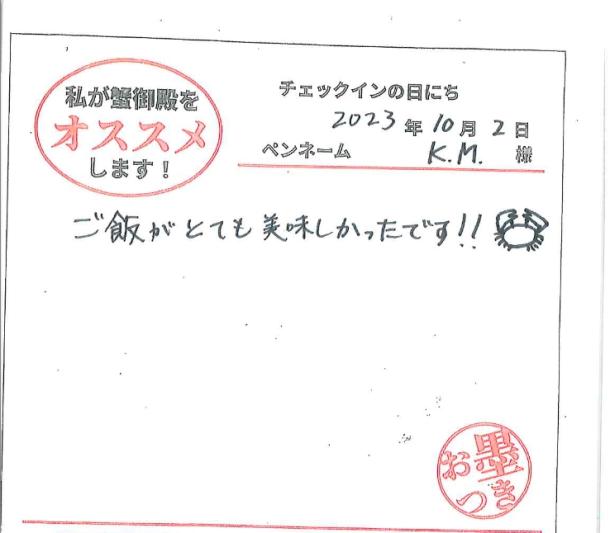 私が蟹御殿を
オススメ
します！
チェックインの日にち
2023年10月2日
ペンネーム K.M. 様
ご飯がとても美味しかったです!!
お墨
つき